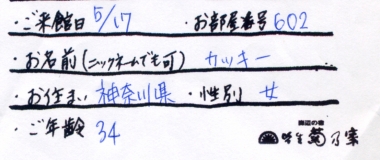 ・ご来館日 5/17 ・お部屋番号 602
・お名前(ニックネームでも可) カッキー
・お住まい 神奈川県 ・性別 女
・ご年齢 34
菊乃家